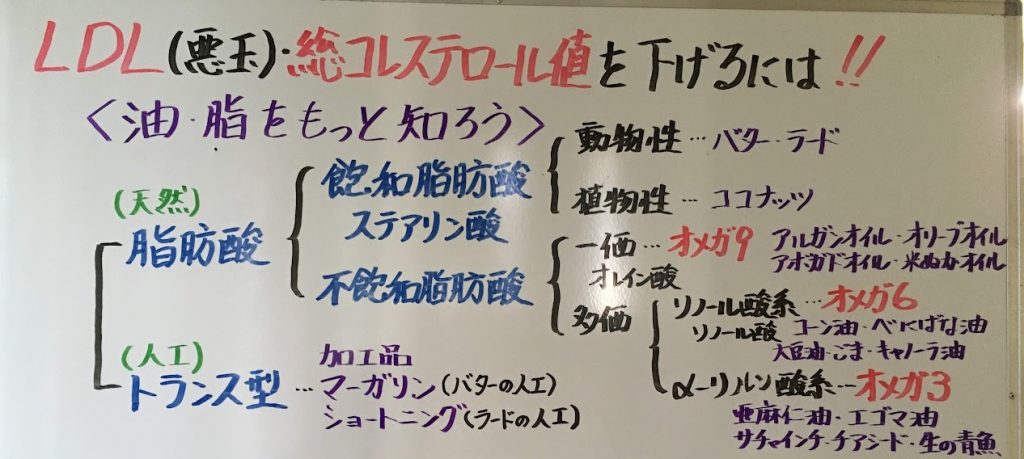 LDL(悪玉)・総コレステロール値を下げるには!!
<油・脂をもっと知ろう>
(天然)
脂肪酸
飽和脂肪酸
ステアリン酸
動物性…バター・ラード
植物性…ココナッツ
不飽和脂肪酸
一価…オメガ9
オレイン酸
アルガンオイル・オリーブオイル
アボガドオイル・米ぬかオイル
多価
リノール酸系…オメガ6
リノール酸
コーン油・べにばな油
大豆油・ごま・キャノーラ油
α-リノレン酸系…オメガ3
亜麻仁油・エゴマ油
サチャインチ・チアシード・生の青魚
(人工)
トランス型…
加工品
マーガリン(バターの人工)
ショートニング(ラードの人工)